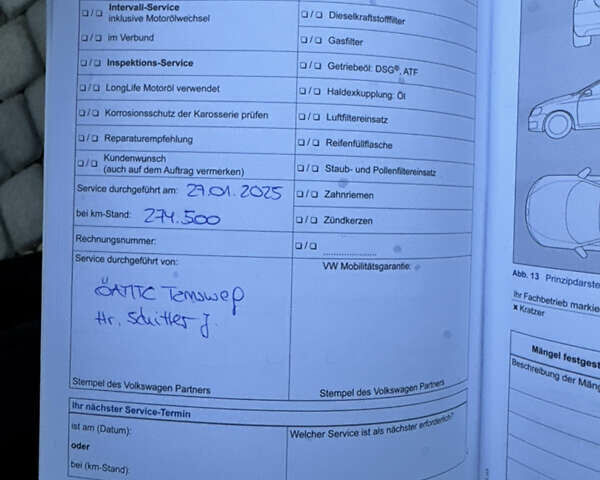 Intervall-Service
inklusive Motorölwechsel
im Verbund
Inspektions-Service
LongLife Motoröl verwendet
Korrosionsschutz der Karosserie prüfen
Reparaturempfehlung
Kundenwunsch
(auch auf dem Auftrag vermerken)
Service durchgeführt am: 27.01.2025
bei km-Stand: 274.500
Rechnungsnummer:
Service durchgeführt von:
ÖAMTC Tamsweg
Hr. Schitter J.
Stempel des Volkswagen Partners
Ihr nächster Service-Termin
ist am (Datum):
oder
bei (km-Stand):
Dieselkraftstofffilter
Gasfilter
Getriebeöl: DSG®, ATF
Haldexkupplung: Öl
Luftfiltereinsatz
Reifenfüllflasche
Staub- und Pollenfiltereinsatz
Zahnriemen
Zündkerzen
VW Mobilitätsgarantie:
Stempel des Volkswagen Partners
Welcher Service ist als nächster erforderlich?
Abb. 13 Prinzipdarste
Ihr Fachbetrieb markie
x Kratzer
Mängel festgest
Beschreibung der Mäng